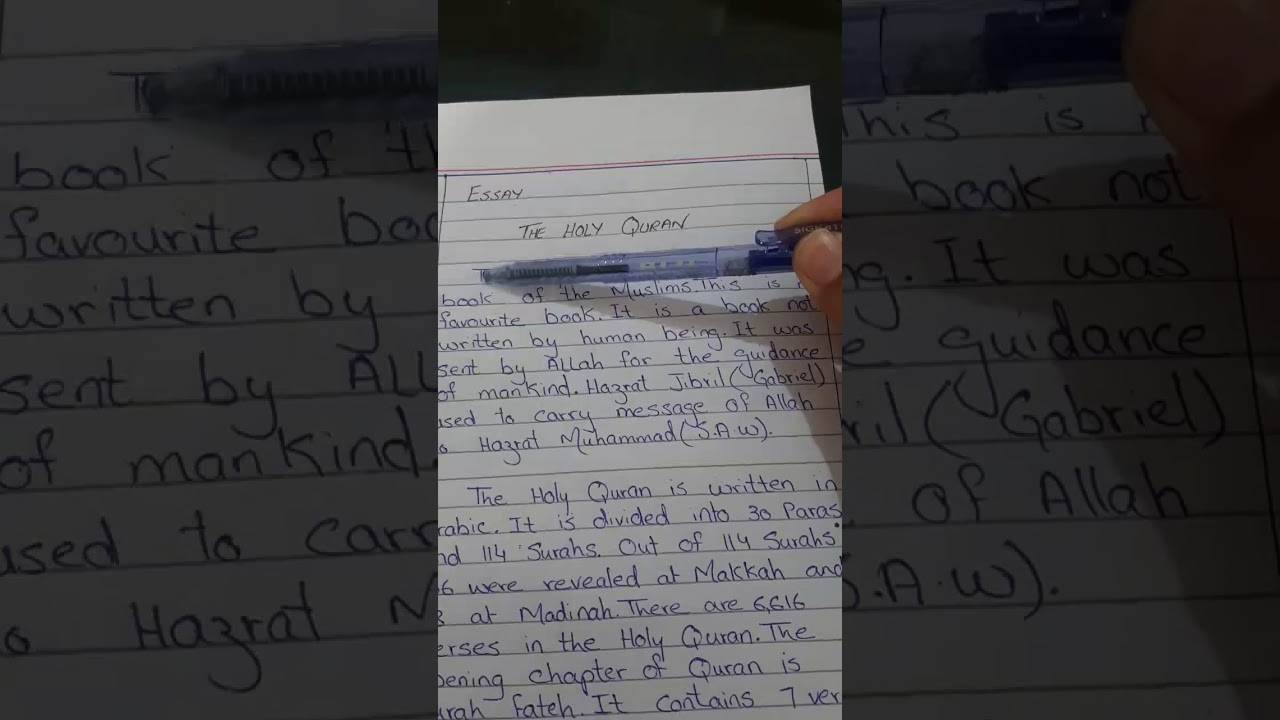 ESSAY
THE HOLY QURAN
book of the Muslims. This is
favourite book. It is a book not
written by human being. It was
sent by Allah for the guidance
of mankind. Hazrat Jibril (Gabriel)
used to carry message of Allah
Hazrat Muhammad (S.A.W).
The Holy Quran is written in
rabic. It is divided into 30 Paras
nd 114 Surahs. Out of 114 Surahs
6 were revealed at Makkah and
at Madinah. There are 6,616
erses in the Holy Quran. The
pening chapter of Quran is
urah Fateh. It contains 7 ver